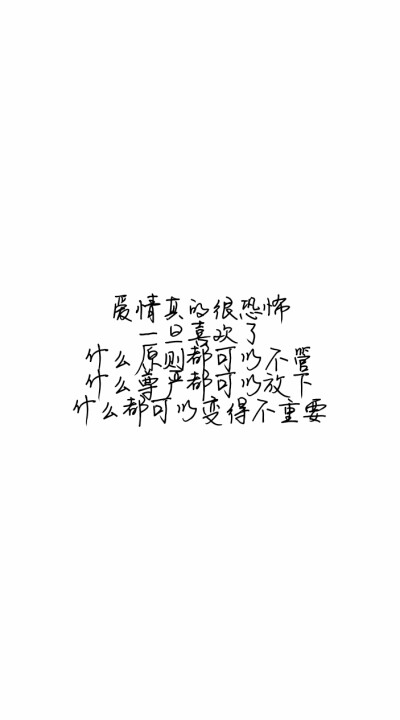 爱情真的很恐怖
一旦喜欢了
什么原则都可以不管
什么尊严都可以放下
什么都可以变得不重要